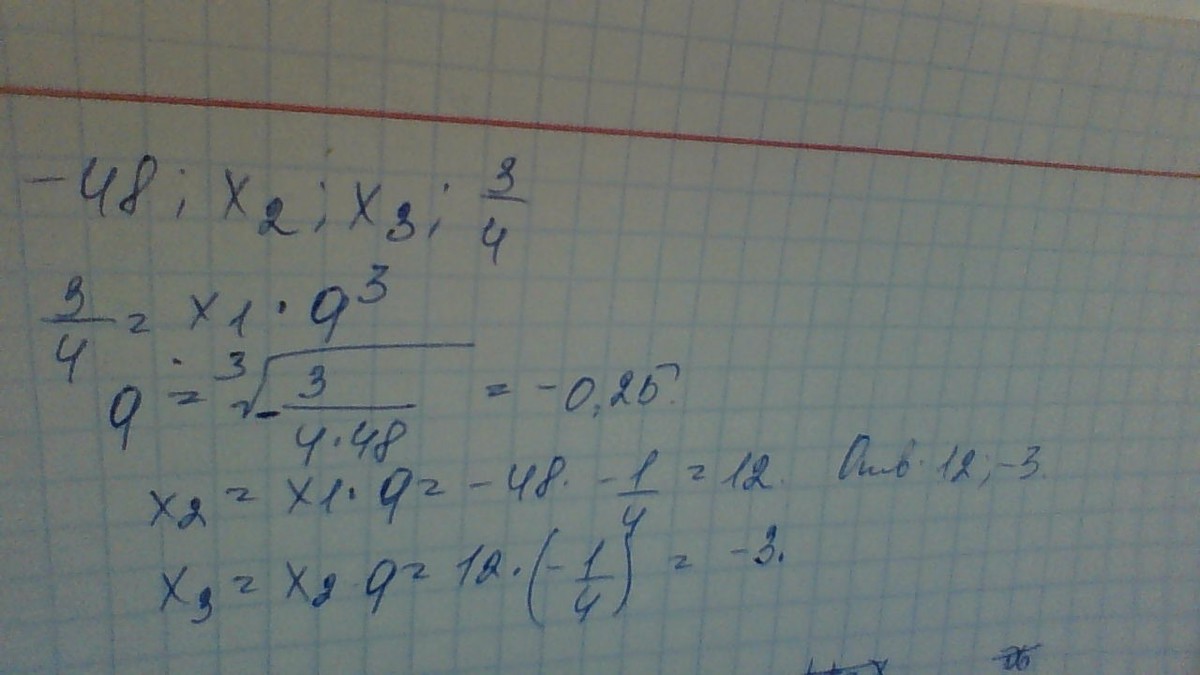 -48; x₂; x₃; 3/4
3/4 = x₁ · q³
q = ³√(-3/(4·48)) = -0,25.
x₂ = x₁ · q = -48 · -1/4 = 12. Отв. 12; -3.
x₃ = x₂ q = 12 · (-1/4) = -3.